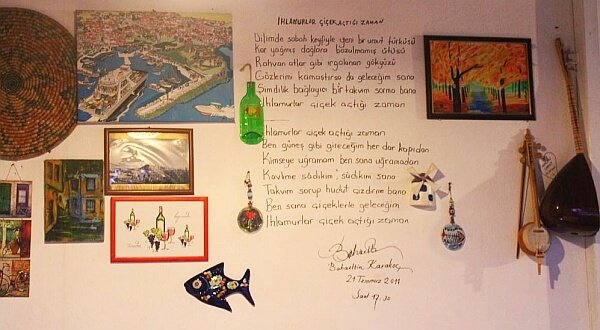 IHLAMURLAR ÇİÇEK AÇTIĞI ZAMAN
Dilimde sabah keyfiyle yeni bir umut türküsü
Kar yağmış dağlara bozulmamış ütüsü
Rahvan atlar gibi ırgalanan gökyüzü
Gözlerimi kamaştırsa da geleceğim sana
Şimdilik bağlayıcı bir takvim sorma bana
Ihlamurlar çiçek açtığı zaman
Ihlamurlar çiçek açtığı zaman
Ben güneş gibi gireceğim her dar kapıdan
Kimseye uğramam ben sana uğramadan
Kavlime sâdıkım, sâdıkım sana
Takvim sorup hudut çizdirme bana
Ben sana çiçeklerle geleceğim
Ihlamurlar çiçek açtığı zaman
Bahaettin Karakoç
21 Temmuz 2011
Saat 17.30